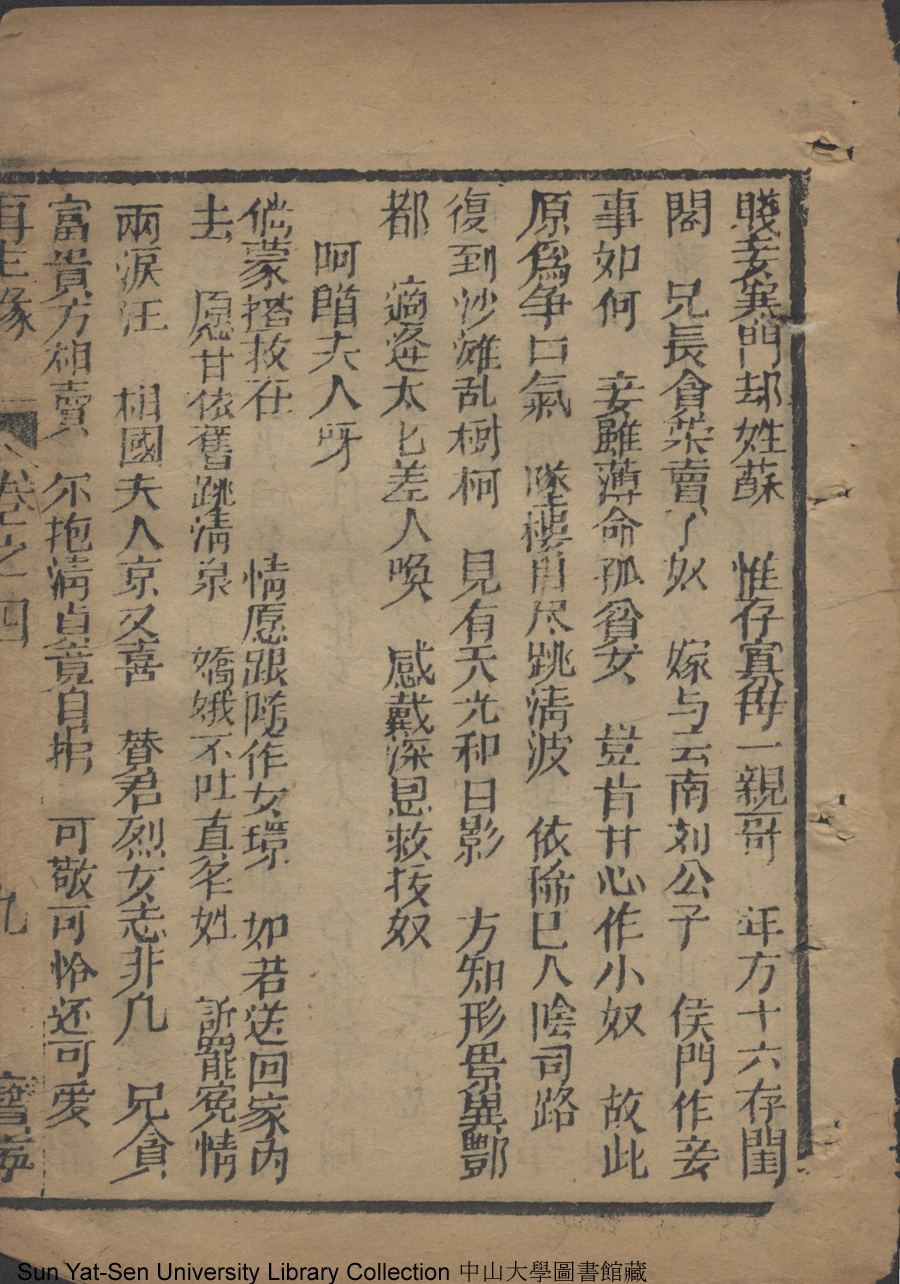 賤妾寒門却姓蘇　惟存寡母一親哥　年方十六存閨
閣　兄長貪柴賣了奴　嫁与云南刘公子　侯門作妾
事如何　妾雖薄命孤貧女　豈肯甘心作小奴　故此
原爲争口氣　墜樓自尽跳清波　依稀已入陰司路
復到沙灘乱樹柯　見有天光和日影　方知形景異酆
都　適逢太七差人喚　感戴深恩救抜奴
呵唷夫人呀
倘蒙搭救在　情愿跟随作女環　如若送回家內
去　愿甘依舊跳清泉　嬌娥不吐直名姓　訴罷冤情
兩淚汪　相國夫人京又喜　賛君烈女志非凡　兄貪
富貴方相賣　尔抱清貞竟自捐　可敬可怜还可爱
再生緣　卷之四　九
Sun Yat-Sen University Library Collection 中山大學圖書館藏